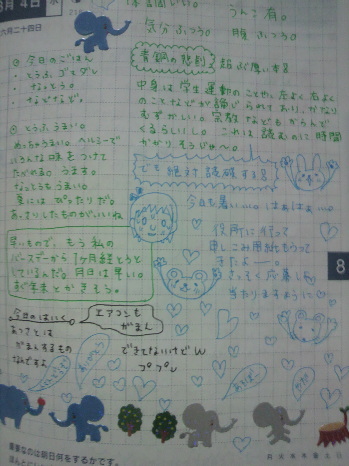 8月4日
六月二十四日
体調いい。
うんこ有。
気分ふつう。
腹ふつう。
◎今日のごはん
・とうふ、ゴマダレ
・なっとう。
・などなど。
青銅の悲劇
超ぶ厚い本8
中身は学生運動のことや、左よく右よく
のことなどが論じられており、かなり
むずかしい。宗教などもからんで
くるらしい。これは、読むのに時間
かかりそうじゃ〜。
◎とうふうまい。
めっちゃうまい。ヘルシーで
いろんな味をつけて
たべれる。うます。
なっとうもうまい。
夏にはぴったりだ。
あっさりしたものがいいね
でも絶対読破する8
今日も暑い…。はぁはぁ…。
役所に行って
申しこみ用紙もらって
きたよー。
さっそく応募しな
当たりますように
早いもので、もう私の
バースデーから1ヶ月経とうと
しているんだ。月日は早い。
すぐ年末とかきそう。
8
今日のはいく
エアコンも
がまん
あつさとは
がまんするもの
なんですよ
できてないけどw
プププ
ありがとう
重要なのは明日何をするかです。